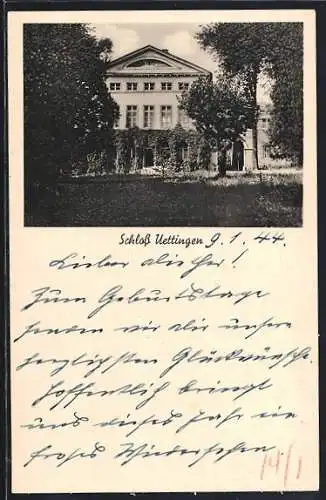 Schloß Uettingen 9.1.44.
Lieber Dieter!
Zum Geburtstage
senden wir dir unsere
herzlichsten Glückwünsche.
Hoffentlich bringt
uns dieses Jahr ein
frohes Wiedersehen.
14/1